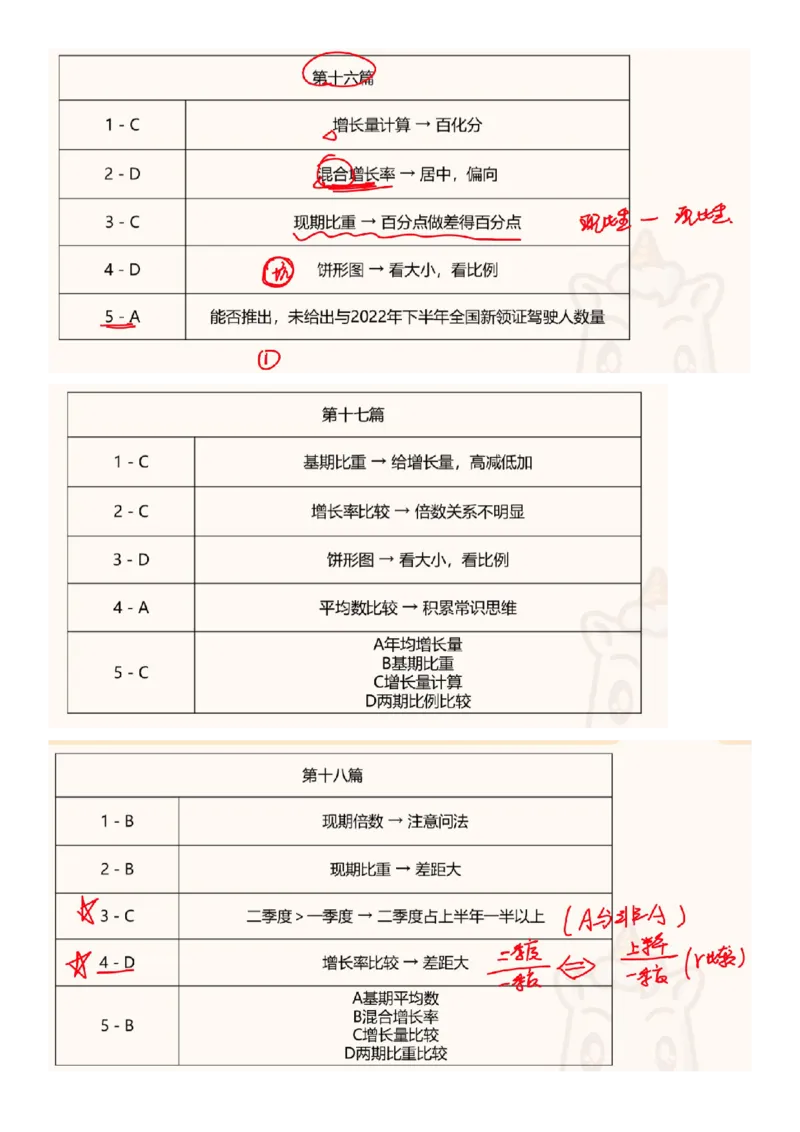 第十六篇
1 - C 增长量计算 → 百化分
2 - D 混合增长率 → 居中，偏向
3 - C 现期比重 → 百分点做差得百分点 现比重 — 现比重
4 - D 坑 饼形图 → 看大小，看比例
5 - A 能否推出，未给出与2022年下半年全国新领证驾驶人数量
①
第十七篇
1 - C 基期比重 → 给增长量，高减低加
2 - C 增长率比较 → 倍数关系不明显
3 - D 饼形图 → 看大小，看比例
4 - A 平均数比较 → 积累常识思维
A年均增长量
B基期比重
5 - C
C增长量计算
D两期比例比较
第十八篇
1 - B 现期倍数 → 注意问法
2 - B 现期比重 → 差距大
3 - C 二季度＞一季度 → 二季度占上半年一半以上 (A与非A)
4 - D 增长率比较 → 差距大 二季度/一季度 ⇔ 上半年/一季度 (r比较)
A基期平均数
B混合增长率
5 - B
C增长量比较
D两期比重比较